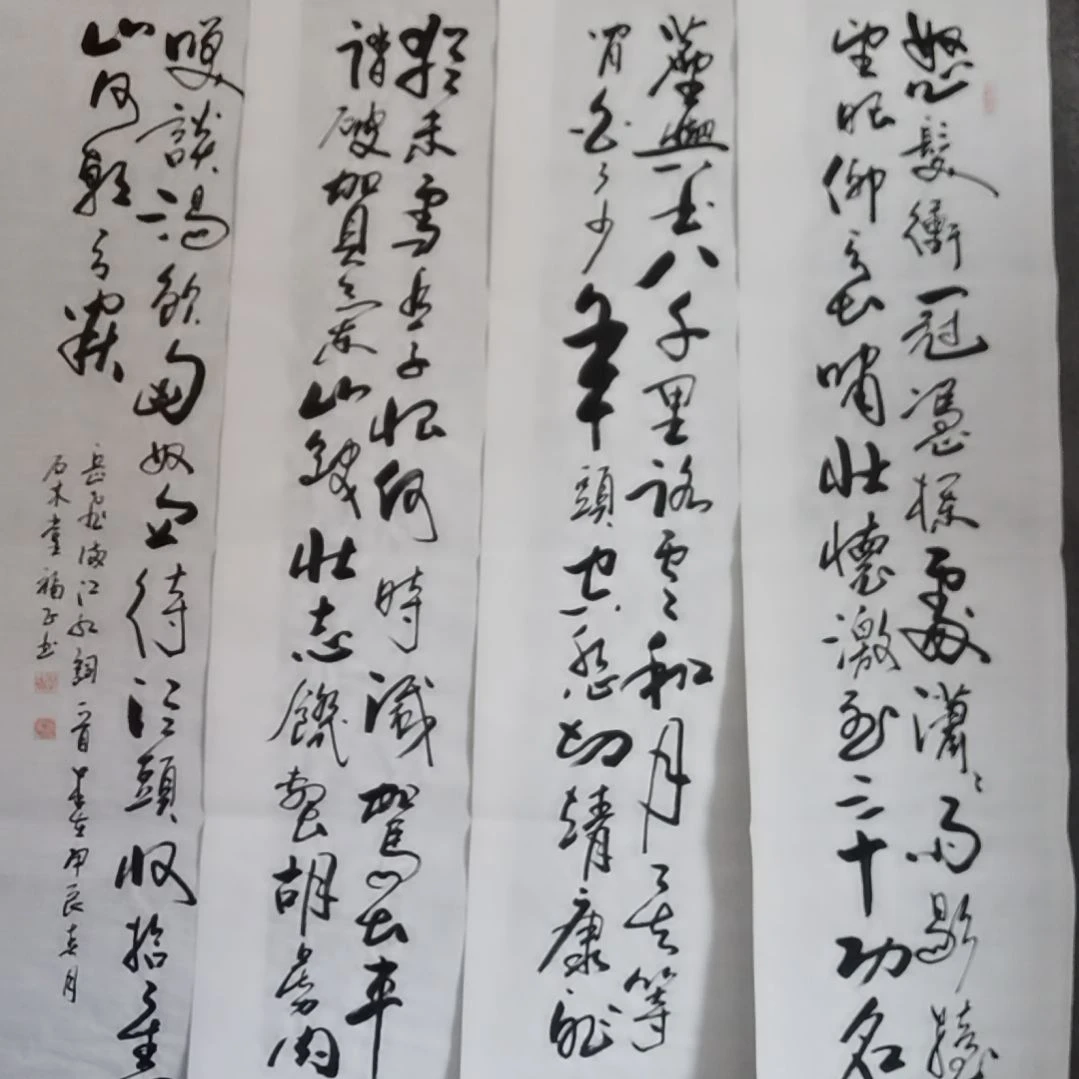 怒髮衝冠憑欄處瀟瀟雨歇擡
望眼仰天長嘯壯懷激烈三十功名
塵與土八千里路雲和月莫等
閒白了少年頭空悲切靖康恥
猶未雪臣子恨何時滅駕長車
踏破賀蘭山缺壯志饑餐胡虜肉
笑談渴飲匈奴血待從頭收拾舊
山河朝天闕
岳飛滿江紅詞一首歲在甲辰春月
石木堂福正书